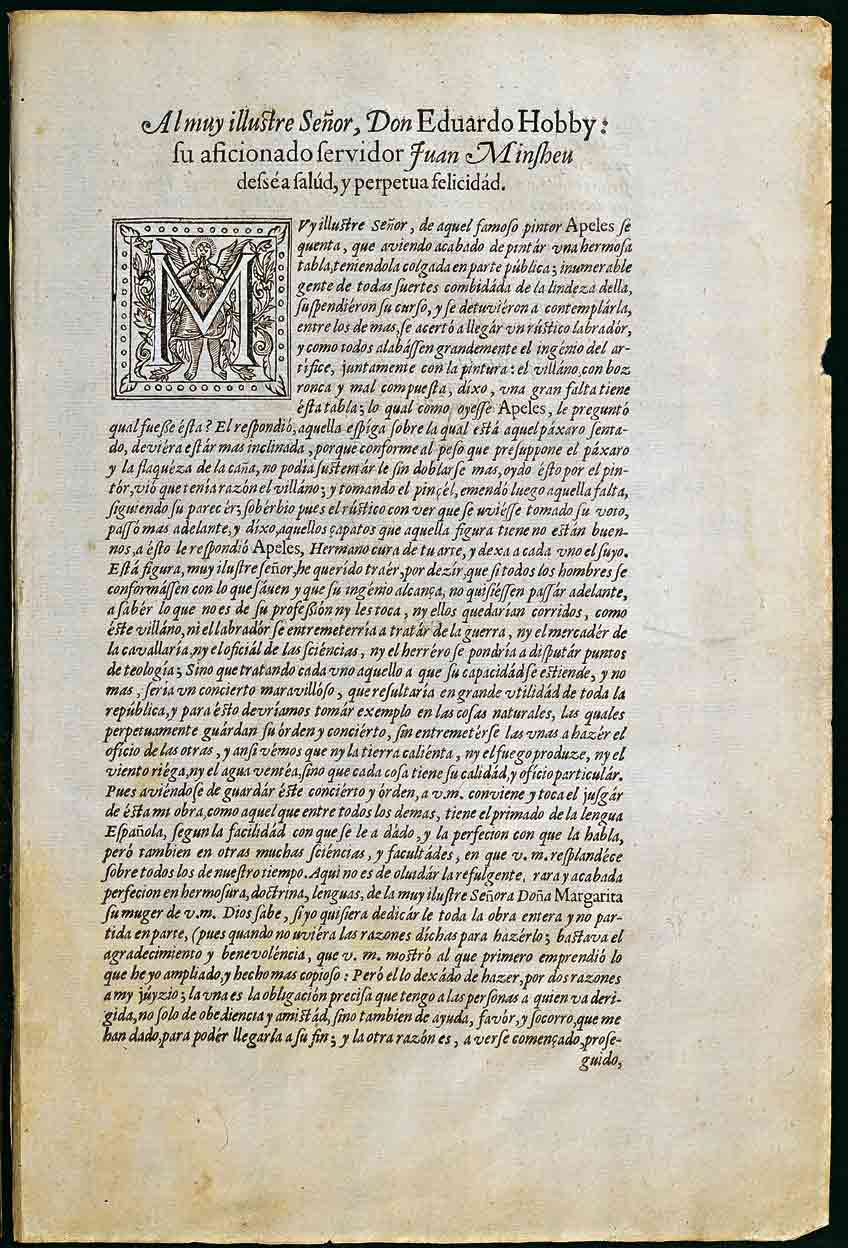 Al muy illuſtre Señor, Don Eduardo Hobby:
ſu aficionado ſervidor Juan Minſheu
deſséa ſalúd, y perpetua felicidád.
MVy illuſtre Señor, de aquel famoſo pintor Apeles ſe
quenta, que aviendo acabado de pintár vna hermoſa
tabla, teniendola colgada en parte pública; inumerable
gente de todas ſuertes combidáda de la lindeza della,
ſuſpendiéron ſu curſo, y ſe detuviéron a contemplárla,
entre los de mas, ſe acertó a llegár vn rúſtico labradór,
y como todos alabáſſen grandemente el ingénio del ar-
tífice, juntamente con la pintura: el villáno, con boz
ronca y mal compueſta, díxo, vna gran falta tiene
éſta tabla; lo qual como oyeſſe Apeles, le preguntó
qual fueße éſta? El reſpondió, aquella eſpíga ſobre la qual eſtá aquel páxaro ſenta-
do, deviéra eſtár mas inclinada, porque conforme al peſo que preſuppone el páxaro
y la flaquéza de la caña, no podía ſuſtentár le ſin doblarſe mas, oydo éſto por el pin-
tór, vió que tenía razón el villáno; y tomando el pinçél, emendó luego aquella falta,
ſiguiendo ſu parecér; ſobérbio pues el rúſtico con ver que ſe uviéſſe tomado ſu voto,
paſſó mas adelante, y díxo, aquellos çapatos que aquella figura tiene no eſtán buen-
nos, a éſto le reſpondió Apeles, Hermano cura de tu arte, y dexa a cada vno el ſuyo.
Eſtá figura, muy iluſtre ſeñor, he querído traér, por dezír, que ſi todos los hombres ſe
conformáſſen con lo que ſáuen y que ſu ingénio alcança, no quiſiéſſen paſſár adelante,
a ſabér lo que no es de ſu profeſſión ny les toca, ny ellos quedarían corridos, como
éſte villáno, ni el labradór ſe entremeterría a tratár de la guerra, ny el mercadér de
la cavallaría, ny el oficiál de las ſciéncias, ny el herréro ſe pondría a diſputár puntos
de teología; Sino que tratando cada vno aquello a que ſu capacidád ſe eſtiende, y no
mas, ſería vn concierto maravillóſo, que reſultaría en grande vtilidád de toda la
república, y para éſto devríamos tomár exemplo en las coſas naturales, las quales
perpetuamente guárdan ſu órden y conciérto, ſin entremetérſe las vnas a hazér el
oficio de las otras, y anſi vémos que ny la tierra caliénta, ny el fuego produze, ny el
viento riéga, ny el agua ventéa, ſino que cada coſa tiene ſu calidád, y oficio particulár.
Pues aviéndoſe de guardár éſte conciérto y órden, a v.m. conviene y toca el juſgár
de éſta mi obra, como aquel que entre todos los demas, tiene el primado de la lengua
Eſpañola, ſegun la facilidád con que ſe le a dádo, y la perfecion con que la habla,
peró tambien en otras muchas ſciéncias, y facultádes, en que v.m. reſplandéce
ſobre todos los de nueſtro tiempo. Aquì no es de oluidár la refulgente, rara y acabada
perfecion en hermoſura, doctrina, lenguas, de la muy iluſtre Señora Doña Margarita
ſu muger de v.m. Dios ſabe, ſi yo quiſiera dedicár le toda la obra entera y no par-
tida en parte, (pues quando no uviéra las razones díchas para hazérlo; baſtava el
agradecimiento y benevoléncia, que v.m. moſtró al que primero emprendió lo
que he yo ampliado, y hecho mas copioſo: Peró ello dexádo de hazer, por dos razones
a my júyzio; la vna es la obligación preciſa que tengo a las perſonas a quien va deri-
gida, no ſolo de obediencia y amiſtád, ſino tambien de ayuda, favór, y ſocorro, que me
han dado, para podér llegarla a ſu fin; y la otra razón es, a verſe començado, proſe-
guido,